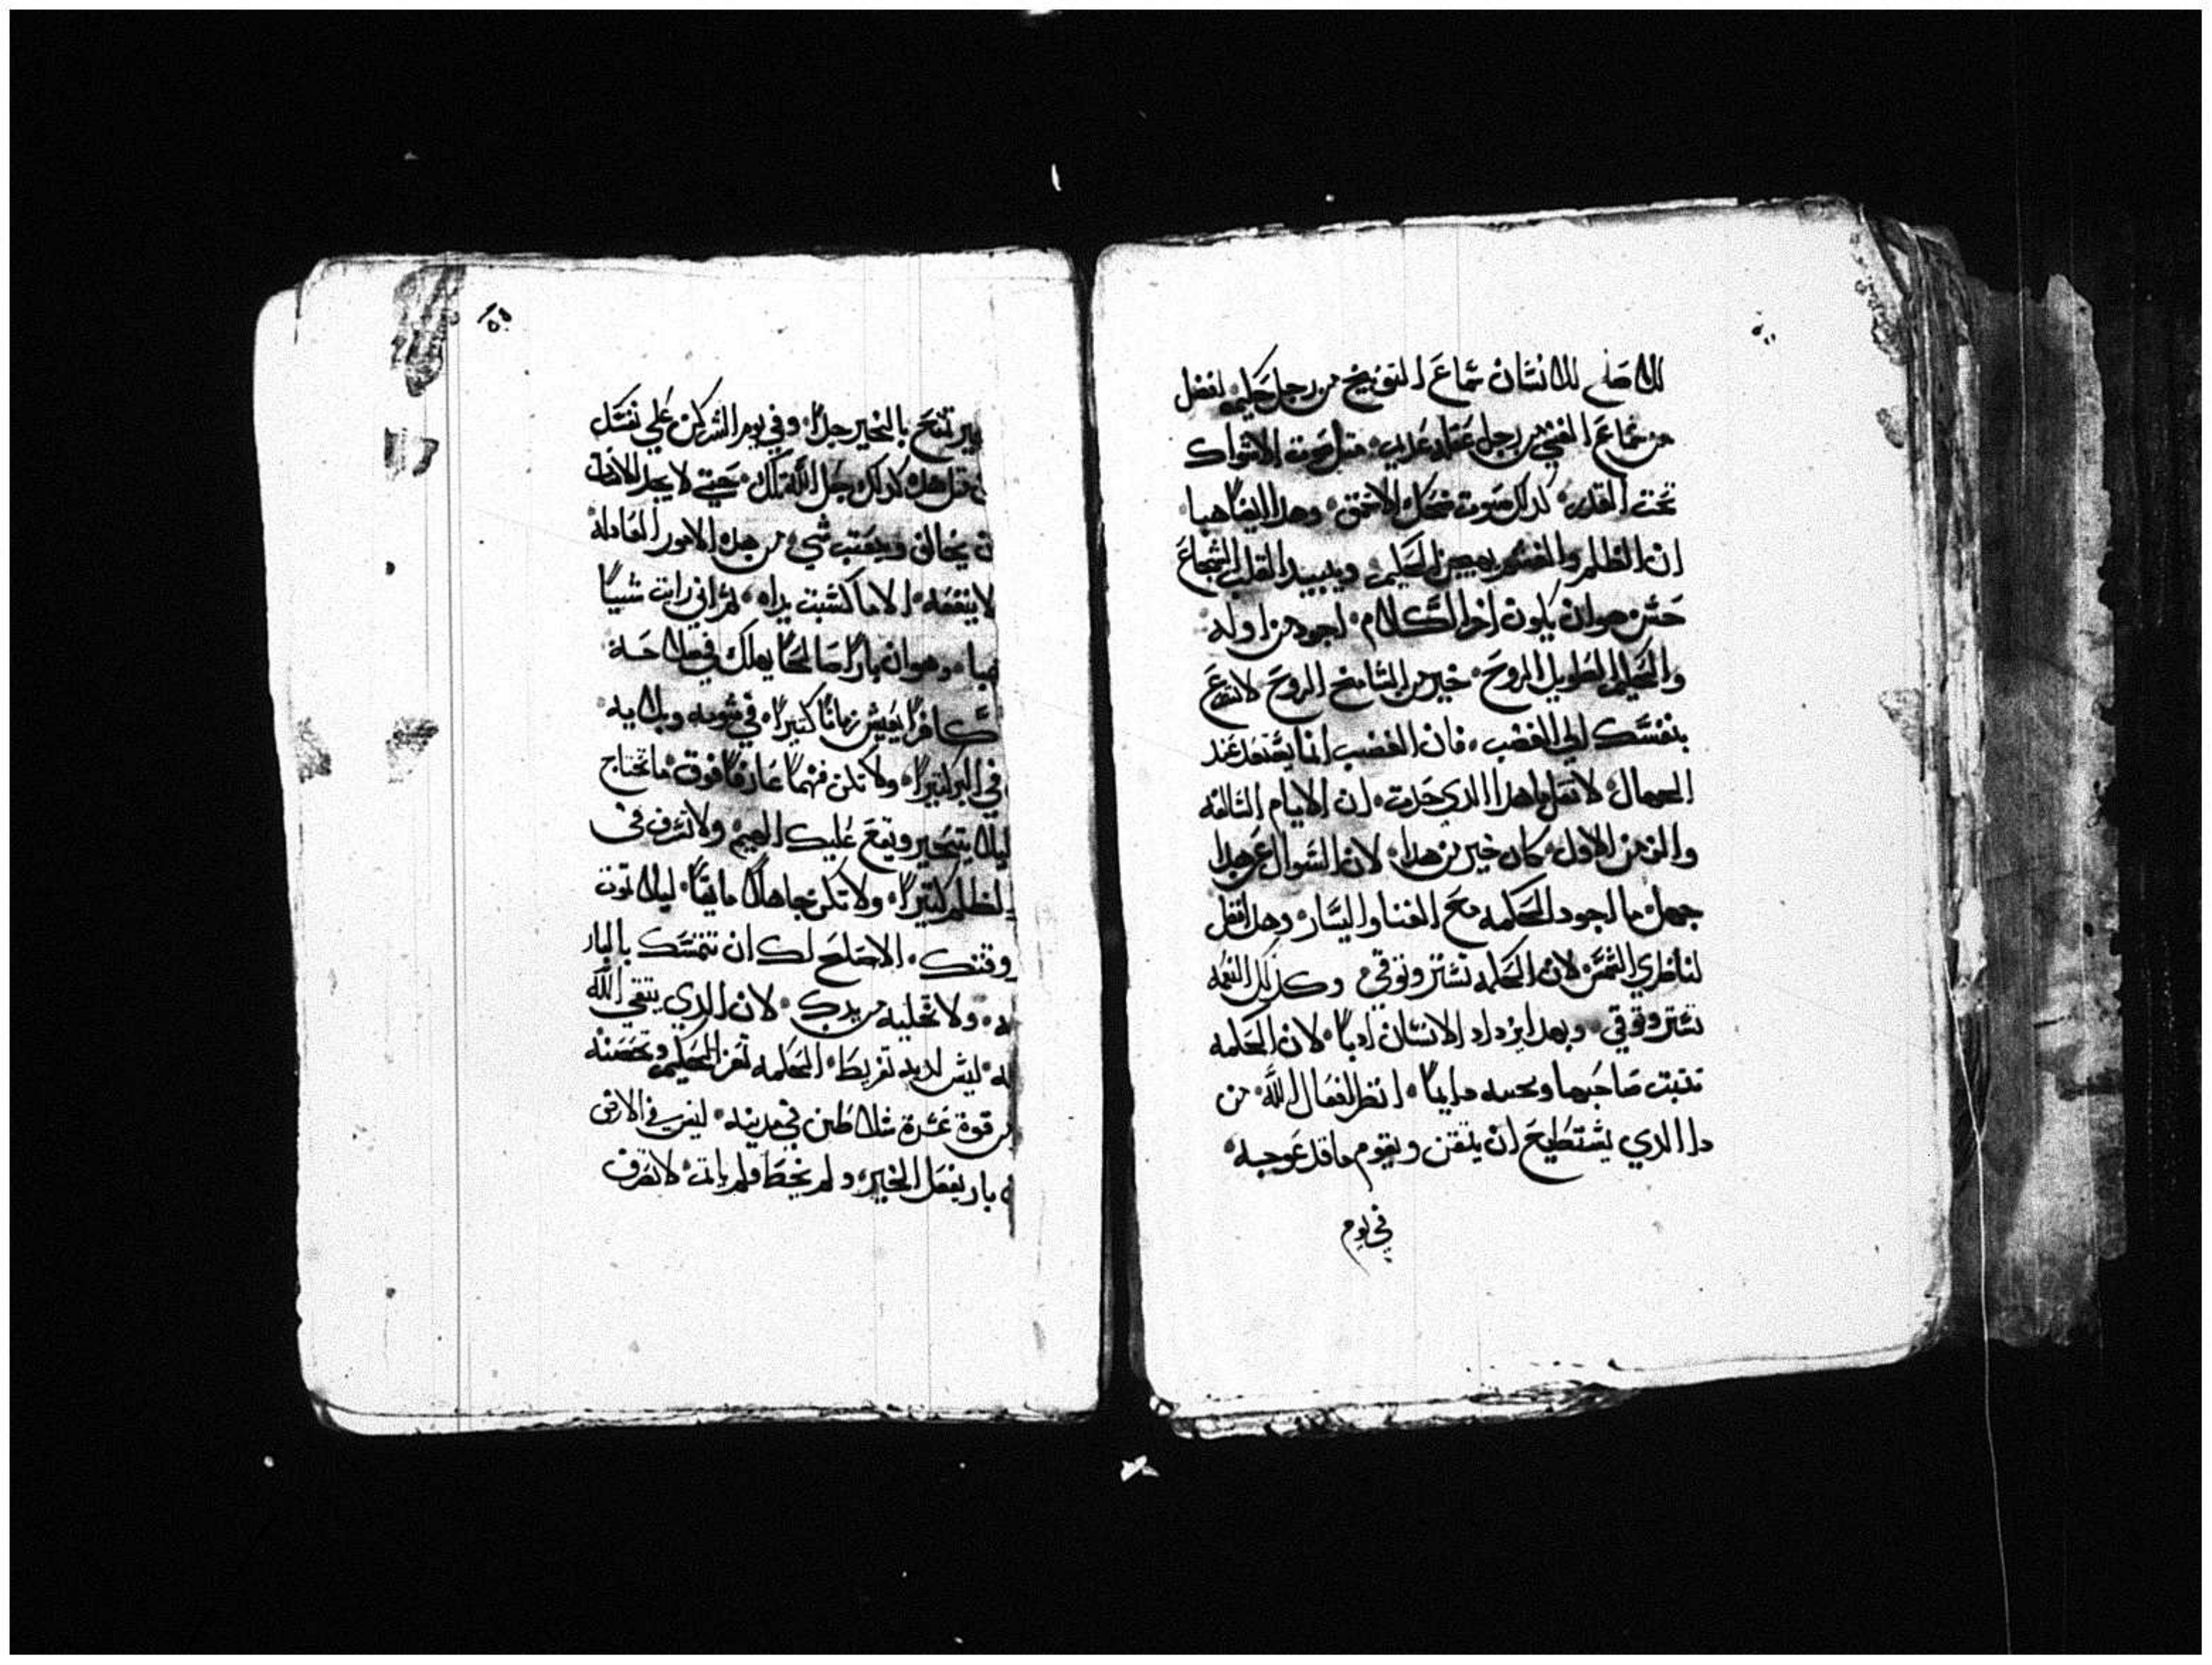 للاصلح للانسان سماع التوبيخ من رجل حكيم افضل
من سماع الغني من رجل عقله غايب مثل صوت الاشواك
تحت القدر كذلك صوت ضحك الاحمق وهذا ايضا هبا
ان الظلم والغشم الحكيم ويبيد القلب الشجاع
حسن هو ان يكون اخر الكلام اجود من اوله
والحكيم الطويل الروح خير من الشامخ الروح لا تسرع
بنفسك الي الغضب فان الغضب انما عند
الجهال لا تقل ماهذا الذي حدث ان الايام السالفه
والزمن الاول كان خير من هذا لان السوال عن هذا
جهل ما اجود الحكمه مع الغنا واليسار وهذا افضل
لناظري الشمس لان الحكمه تستر وتوقي وكذلك النعمه
تستر وتوقي وبهدا يزداد الانسان ادبا لان الحكمه
تتبت صاحبها وتحييه دايما انظر لفعال الله من
دا الدي يستطيع ان يتقن ويقوم ماقد عوجه
في يوم
١٥٥
تنيح بالخير جدا وفي يوم الشر كن علي نفسك
قبل هذا كذلك جعل الله تلك حتي لا يجد الانسان
ان يخالف ويعيب شي من هذه الامور الفاعله
لا ينفعه الا ما كسبت يداه ثم اني رايت شيا
هبا وهو ان بارا صالحا يهلك في صلاحه
كافرا يعيش زمانا كثيرا في شوبه وبلايه
في البر كتيرا ولا تكن فهما عارفا فوق ما تحتاج
ليلا يتحير ويقع عليك العيم ولا تسرف في
الظلم كتيرا ولا تكن جاهلا مايقا ليلا تموت
وقتك الاصلح لك ان تتمسك بالبار
ولا تخليه من يدك لان الدي يتقي الله
ليس لديه تفريط الحكمه تعز الحكيم وتحصنه
من قوة عشرة سلاطين في مدينه ليس في الارض
بار يفعل الخير ولم يخط ولم ياتم لا تصرف